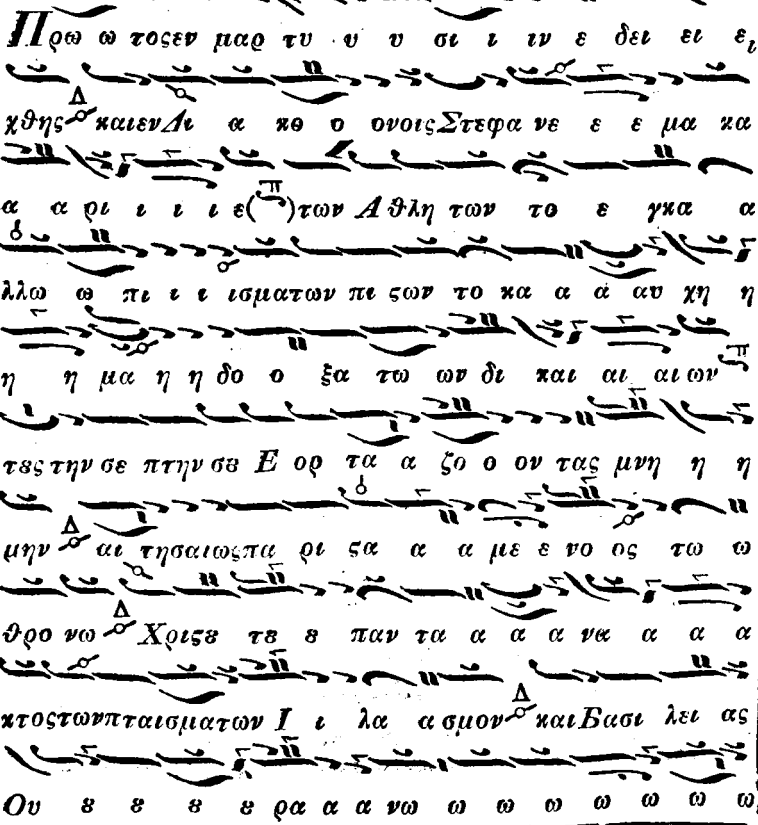 Πρω ω τοςεν μαρ τυ υ υ σι ι ιν ε δει ει ει
χθης Δ καιενΔι α κο ο ονοιςΣτεφα νε ε ε μα κα
α α ρι ι ι ι ε(π)των Α θλη των το ε γκα α
λλω ω πι ι ι ισματων πι ςων το κα α ά αυ χη η
η η μα η η δο ο ξα τω ων δι και αι αιων π
τȣς την σε πτην σȣ Ε ορ τα α ζο ο ον τας μνη η η
μην Δ αι τησαιωςπα ρι ςα α α με ε νο ος τω ω
θρο νω Δ Χριςȣ τȣ ȣ παν τα α α α να α α α
κτοςτωνπταισματων Ι ι λα α σμον Δ καιΒασι λει ας
Ου ȣ ȣ ȣ ȣ ρα α α νω ω ω ω ω ω ω ω